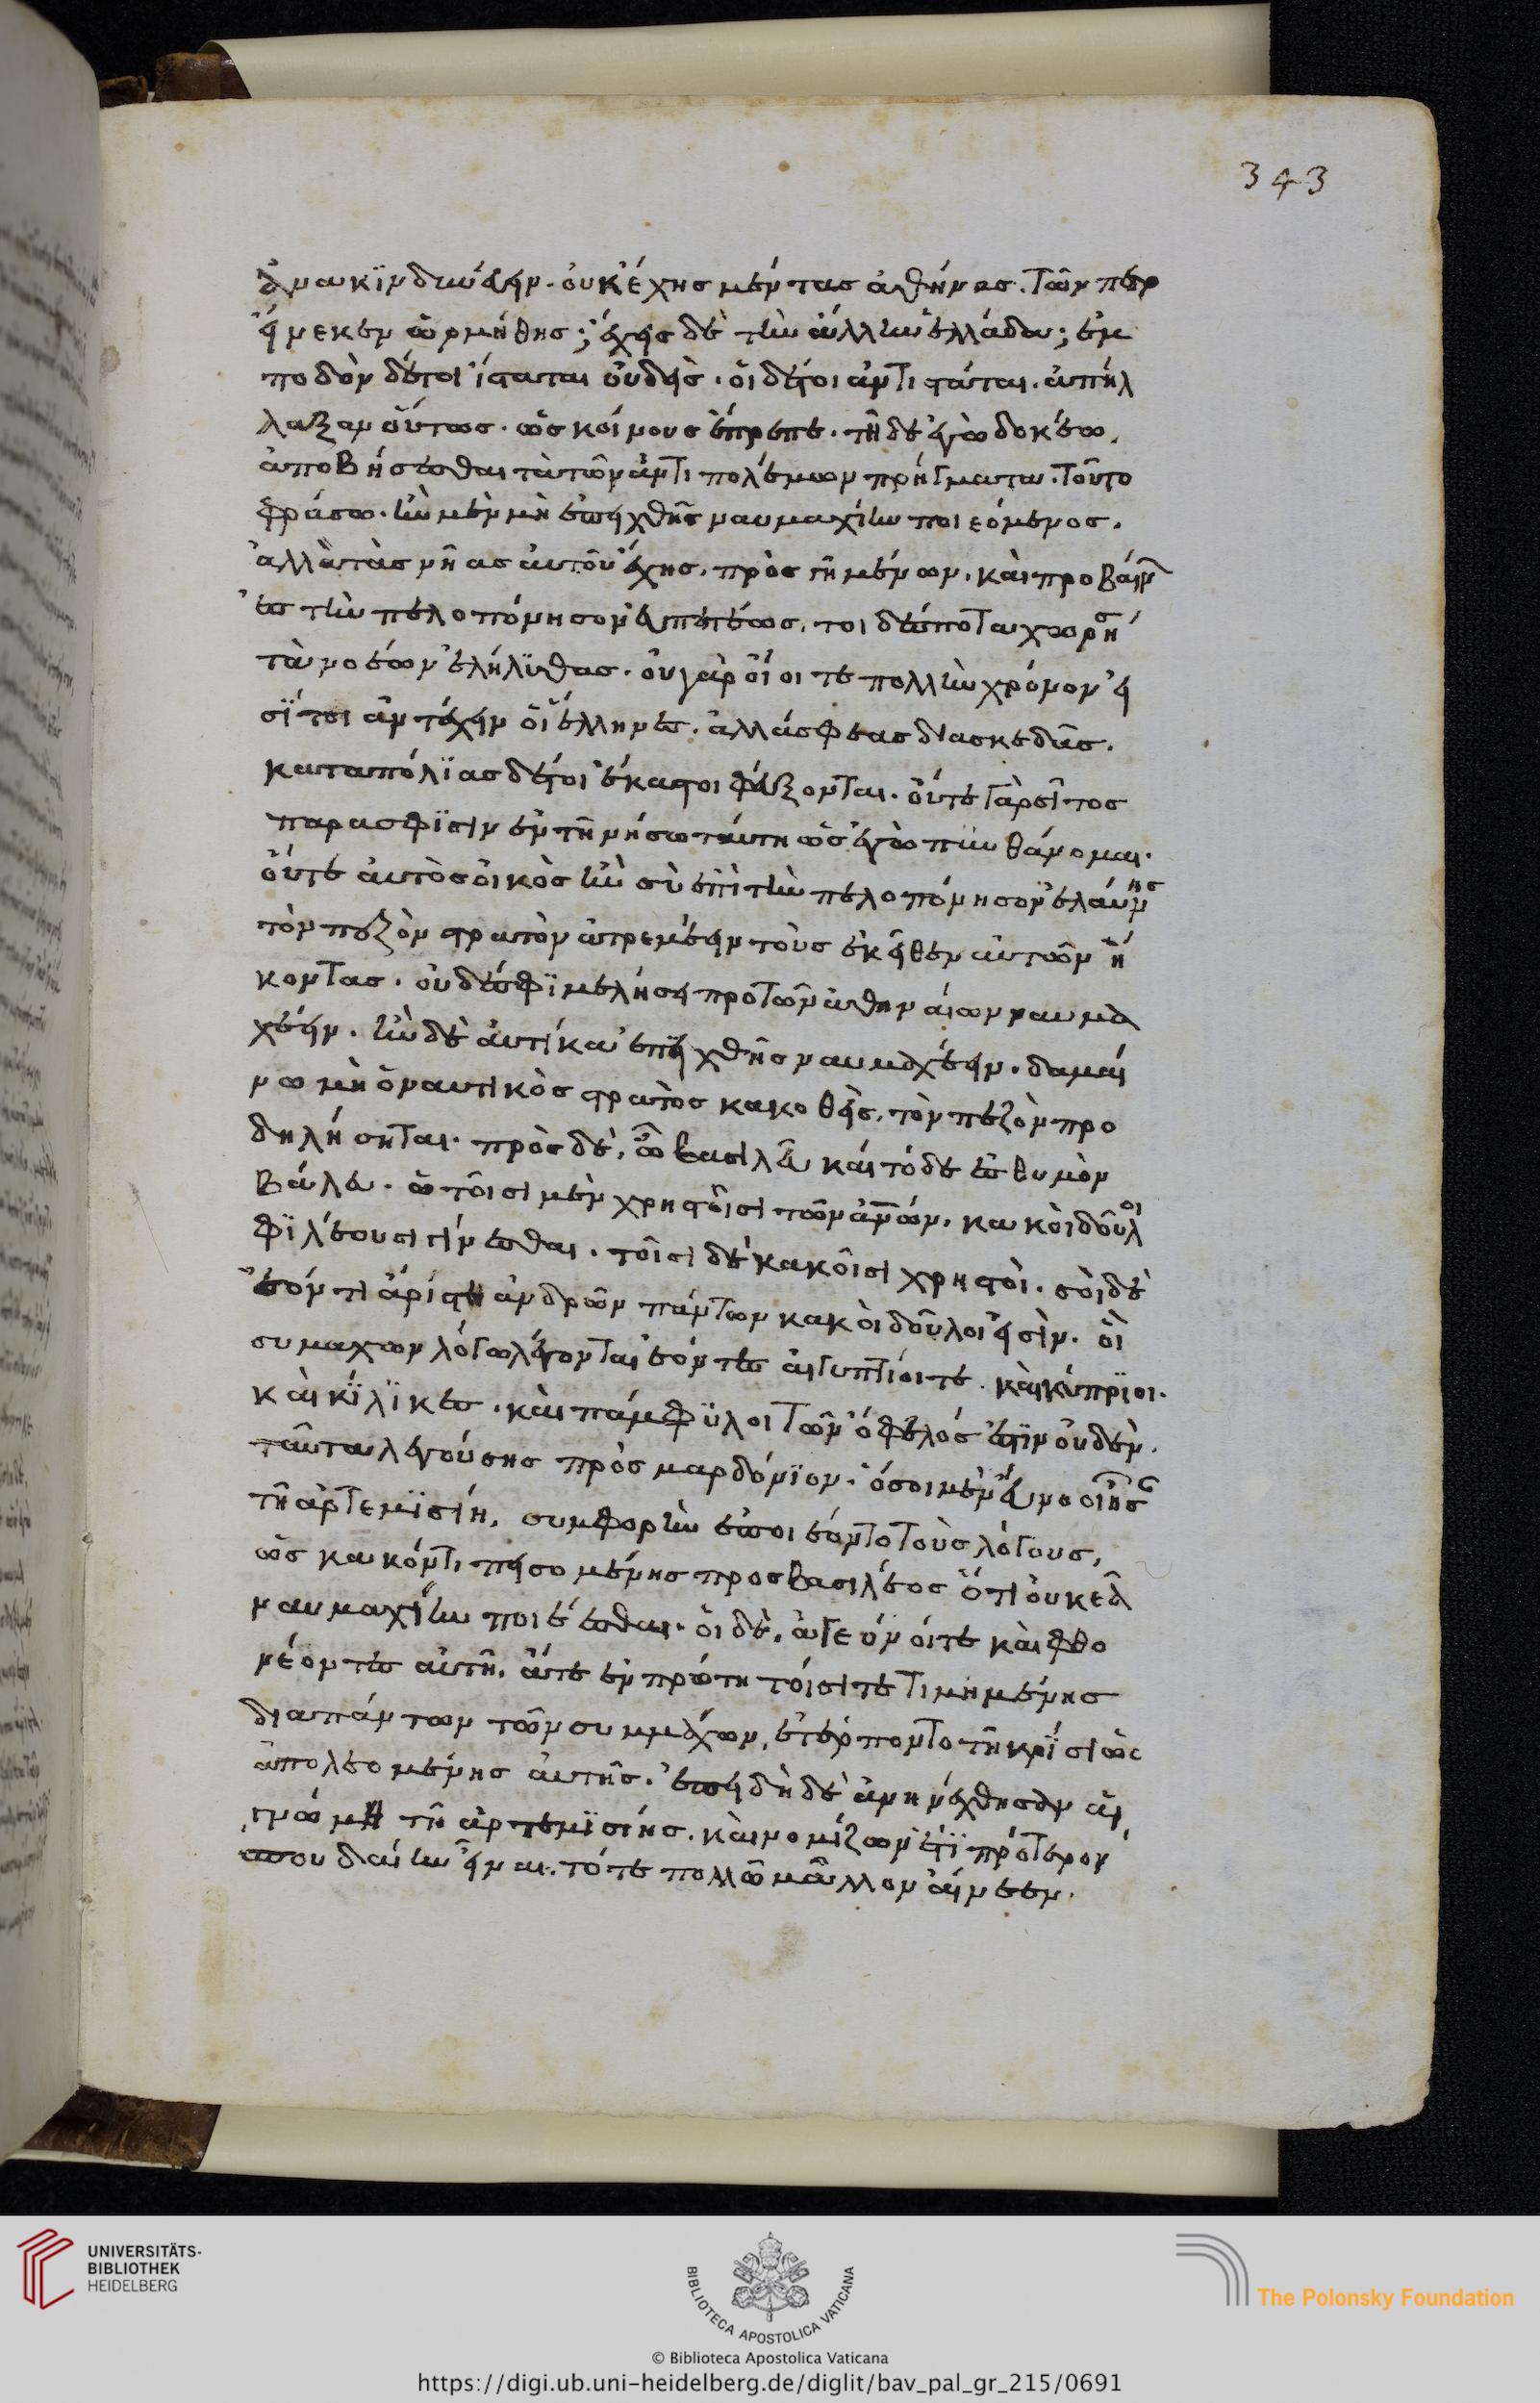 343
ἀνακινδυνεύειν. οὐκ ἔχης μὲν τὰς ἀθήνας. τῶν περ
εἵνεκεν ὡρμήθης; ἔχεις δὲ τὴν ἄλλην ἑλλάδα; ἐμ
ποδὼν δέ τοι ἵσταται οὐδεὶς. οἳ δέ τοι ἀντίσταται. ἀπήλ
λαξαν οὕτως. ὡς κείνους ἔπρεπε. τῆ δὲ ἐγὼ δοκέω,
ἀποβήσεσθαι τὰ τῶν ἀντιπολέμων πρήγματα. τοῦτο
φράσω. ἢν μὲν μὴ ἐπειχθῆς ναυμαχίην ποιεόμενος.
ἀλλὰ τὰς νῆας αὐτοῦ ἔχης. πρὸς γῆ μένων. καὶ προβαίν
ἐς τὴν πελοπόνησον εὐπετέως. τοι δέσποτα χωρήσ
τὰ νοέων ἐλήλυθας. οὐ γὰρ οἷοί τε πολλὸν χρόνον εἰ
σί τοι ἀντέχειν οἱ ἕλληνες. ἀλλά σφεας διασκεδᾶς.
κατὰ πόλιας δέ τοι ἕκαστοι φεύξονται. οὔτε γὰρ σῖτος
παρα σφίσιν ἐν τῆ νήσω ταύτη ὡς ἐγὼ πυνθάνομαι.
οὔτε αὐτοὺς οἰκὸς ἢν σὺ ἐπὶ τὴν πελοπόνησον ἐλαύνης
τὸν πεζὸν στρατὸν ἀτρεμέειν τοὺς ἐκεῖθεν αὐτῶν ἥ
κοντας. οὐδέ σφι μελήσει πρὸ τῶν ἀθηναίων ναυμα
χέειν. ἢν δὲ αὐτίκα ἐπειχθῆς ναυμαχέειν. δαμαί
νω μὴ ὁ ναυτικὸς στρατὸς κακωθεὶς. τὸν πεζὸν προ
δηλήσηται. πρὸς δὲ, ὦ βασιλεῦ καὶ τόδε ἐς θυμὸν
βάλευ. ὡς τοῖσι μὲν χρηστοῖσι τῶν ἀνων. κακοὶ δοῦλοι
φιλέουσι γίνεσθαι. τοῖσι δὲ κακοῖσι χρηστοὶ. σοὶ δὲ
ἐόντι ἀρίστω ἀνδρῶν πάντων κακοὶ δοῦλοι εἰσὶν. οἳ
συμάχων λόγω λέγονται ἐόντες αἰγύπτιοί τε. καὶ κύπριοι.
καὶ κίλικες. καὶ πάμφυλοι τῶν ὄφελός ἐστιν οὐδὲν.
ταῦτα λεγούσης πρὸς μαρδόνιον. ὅσοι μὲν εὖνοοι ἦσ
τῆ ἀρτεμισίη. συμφορὴν ἐποιέοντο τοὺς λόγους,
ὡς κακόν τι πεισομένης προς βασιλέος ὅτι οὐκ ἐᾶ
ναυμαχίην ποιέεσθαι. οἱ δὲ, ἀγεόμενοί τε καὶ φθο
νέοντες αὐτῆ. ἅτε ἐν πρώτηι τοῖσί τε τιμημένης
διαπάντων τῶν συμμάχων, ἐτέρποντο τῆ κρίσι ὡς
ἀπολεομένης αὐτῆς. ἐπειδὴ δὲ ἀνηνέχθησαν αἱ
γνῶμαι τῆ ἀρτεμισίης. καὶ νομίζων ἔτι πρότερον
σπουδαίην εἶναι. τότε πολλῶ μᾶλλον αἴνεεν.
UNIVERSITÄTS-
BIBLIOTHEK
HEIDELBERG
BIBLIOTECA APOSTOLICA VATICANA
The Polonsky Foundation
© Biblioteca Apostolica Vaticana
https://digi.ub.uni-heidelberg.de/diglit/bav_pal_gr_215/0691